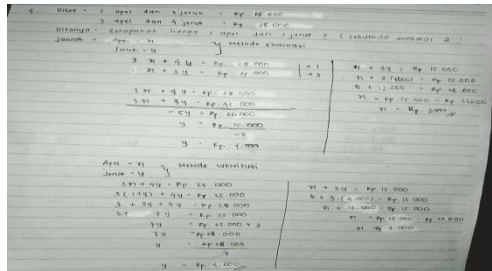 4. Diket = 1 apel dan 3 jeruk = Rp. 15.000
3 apel dan 4 jeruk = Rp. 25.000
Ditanya = berapakah harga 1 apel dan 1 jeruk ?
Jawab = Apel = x
Jeruk = y } Metode eliminasi
3x + 4y = Rp. 25.000 | × 1
x + 3y = Rp. 15.000 | × 3
3x + 4y = Rp. 25.000
3x + 9y = Rp. 45.000
-5y = Rp. 20.000
y = Rp. 20.000
-5
y = Rp. 4.000
x + 3y = Rp 15.000
x + 3 (4000) = Rp. 15.000
x + 12.000 = Rp. 15.000
x = Rp 15.000 - Rp 12.000
x = Rp. 3000
Apel = x
Jeruk = y } Metode substitusi
3x + 4y = Rp 25.000
3 (1+y) + 4y = Rp. 25.000
3 + 3y + 4y = Rp 25.000
3 + 7y = Rp. 25.000
7y = Rp. 25.000 + 3
7y = Rp 28.000
y = Rp 28.000
7
y = Rp 4.000
x + 3y = Rp 15.000
x + 3 (4.000) = Rp 15.000
x + 12.000 = Rp 15.000
x = Rp 15.000 - Rp 12.000
x = Rp 3.000